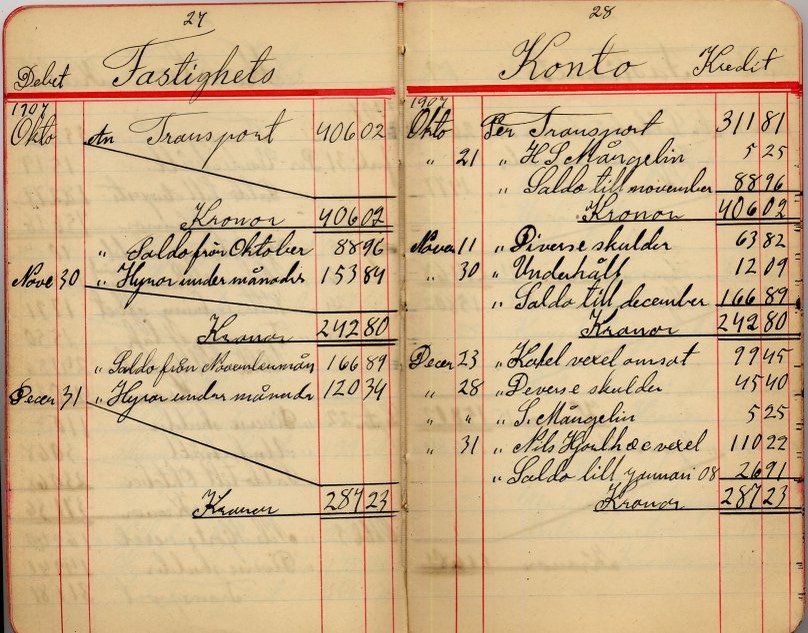 27
Debet Fastighets
1907
Okto An Transport 406 02
Kronor 406 02
" Saldo från Oktober 88 96
Nove 30 " Hyror under månader 153 84
Kronor 242 80
" Saldo från Novembermån 166 89
Decer 31 " Hyror under månade 120 34
Kronor 287 23
28
Konto Kredit
1907
Okto Per Transport 311 81
" 21 " H S Mångelin 5 25
" Saldo till november 88 96
Kronor 406 02
Nover 11 " Diverse skulder 63 82
" 30 " Underhåll 12 09
" Saldo till december 166 89
Kronor 242 80
Decer 23 " vexel omsat 99 45
" 28 " Deverse skulder 45 40
" " " S. Mångelin 5 25
" 31 " Nils vexel 110 22
" Saldo till januari 08 26 91
Kronor 287 23